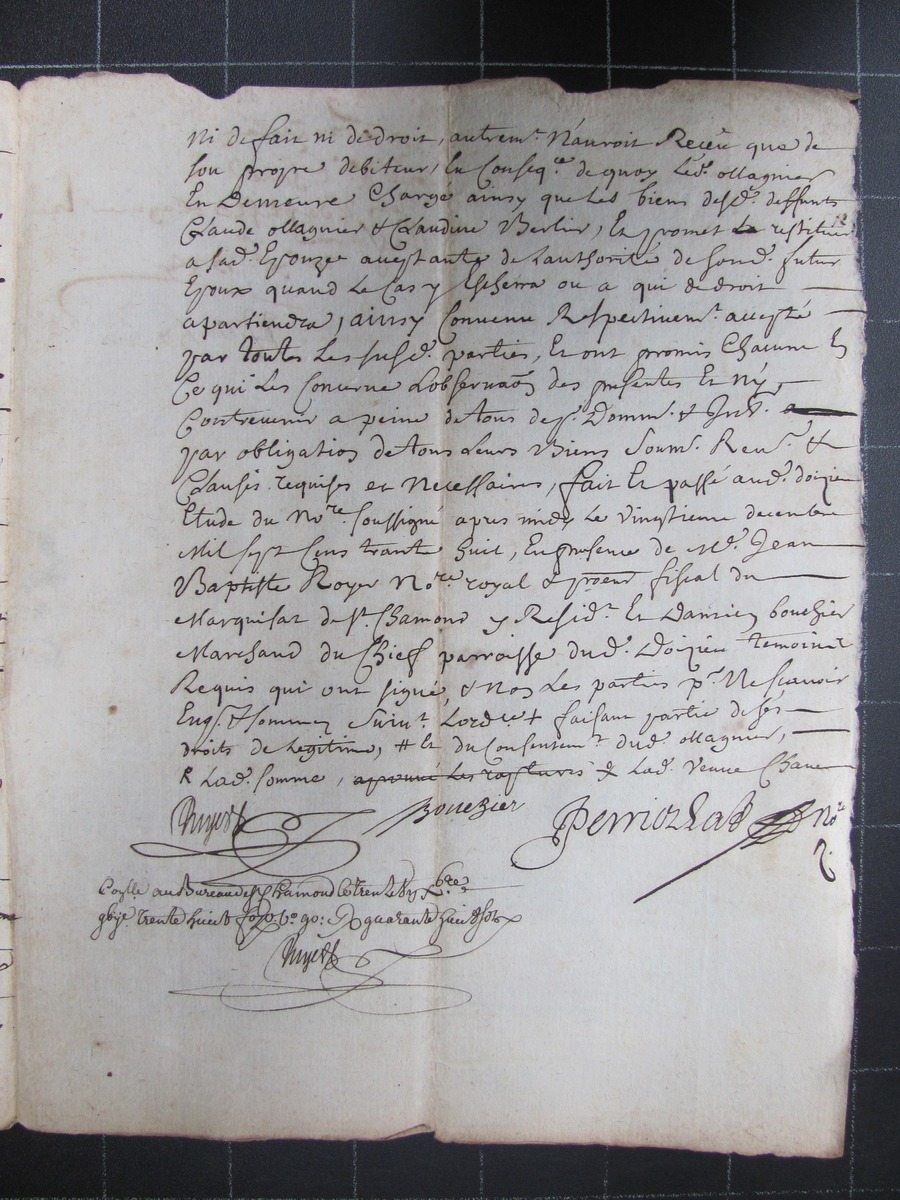 ni de fait ni de droit, autremt. N'auroit Receu que de
son propre debiteur, En Conseqce. de quoy Led. ollagnier
En Demeure Chargé ainsy que les biens desd. deffunts
Claude ollagnier & Claudine Berlier, Et promet restituer
a sad. Epouze aceptante de Lauthorité de sond. futur
Epoux quand Le Cas y Escherra ou a qui de droit
apartiendra, ainsy Convenu Respectivemt. accepté
par toutes Les susd. parties, Et ont promis Chacune En
Ce qui Les Concerne Lobservaon des presentes Et N'y
Contrevenir a peine de tous dep. Domm. & Int.
par obligation de tous Leurs Biens Soum. Ren. &
Clauses requises et Necessaires, fait Et passé aud. doizieu
Etude du Nore. soussigné apres midy Le Vingtieme decembre
Mil sept Cens trante huit, En presence de Me. Jean
Baptiste Royer Nore. royal & procur fiscal du
Marquisat de st. Chamond y Residt. Et Damien bouchier
Marchand du Chief parroisse dud. Doizieu temoins
Requis qui ont signé, & Non Les parties pr. Ne scavoir
Enqs. & sommes Suivt. Lordce + faisant partie de ses
droits de Legitime, # Et du Consentemt. dud. ollagnier,
Lad. somme, aprouvé Les rastures & Lad. Veuve
Royer Bouchier Perriollat Nore.
au Bureau de st Chamond Le trente Xbre
trente huit fo vo 90: quarante huit sols
Royer